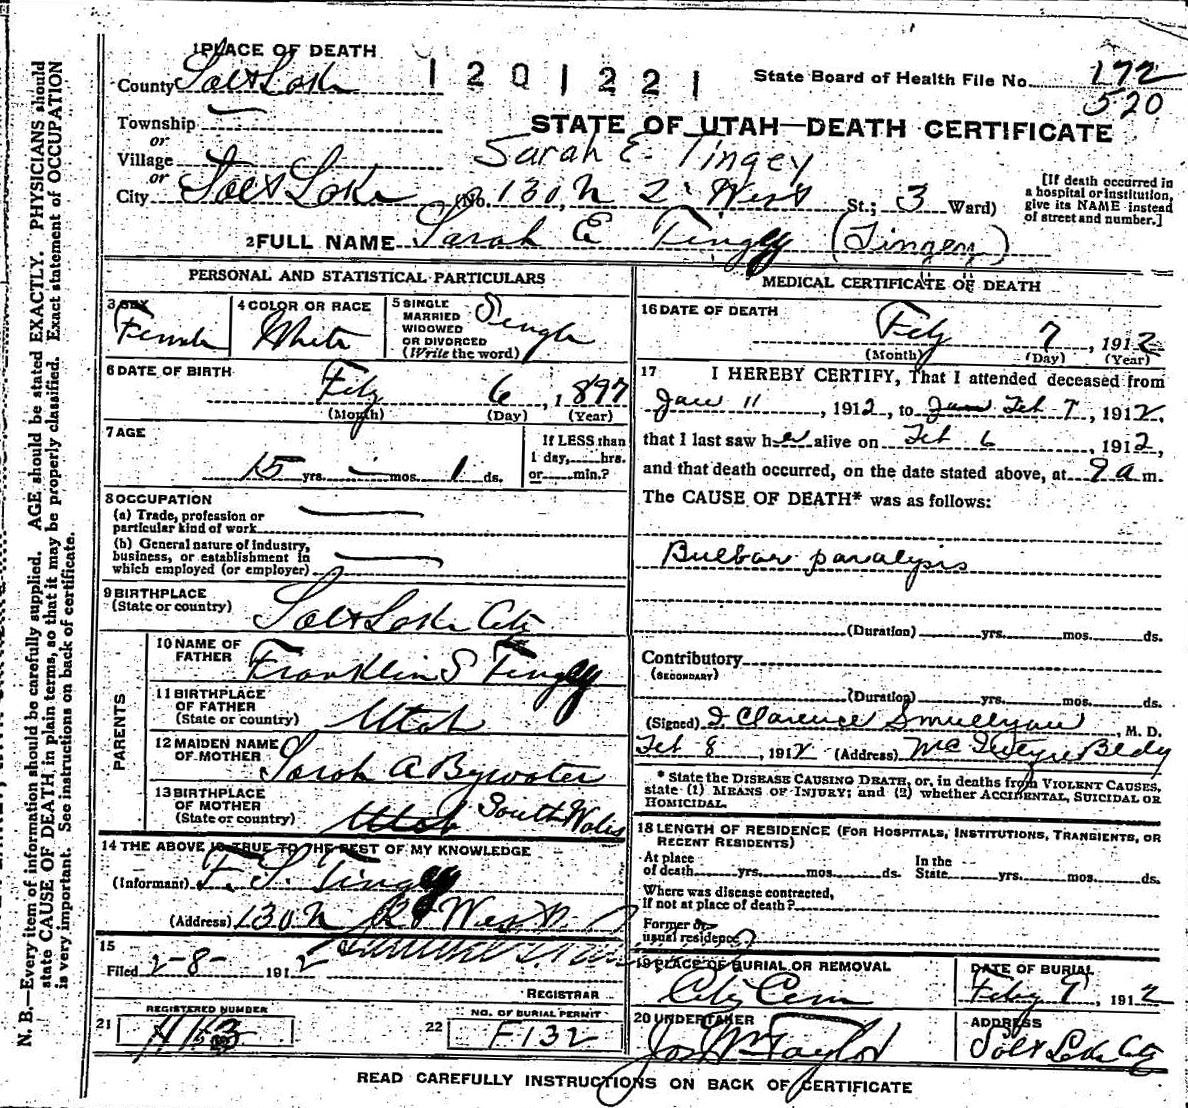 1 PLACE OF DEATH
County Salt Lake
1 2 0 1 2 2 1
State Board of Health File No. 172
520
Township
or
Village
or
City Salt Lake
STATE OF UTAH—DEATH CERTIFICATE
Sarah E. Tingey
No. 130 N 2 West St.; 3 Ward)
[If death occurred in
a hospital or institution,
give its NAME instead
of street and number.]
2 FULL NAME Sarah E Tingey (Tingey)
PERSONAL AND STATISTICAL PARTICULARS
3 SEX
Female
4 COLOR OR RACE
White
5 SINGLE
MARRIED
WIDOWED
OR DIVORCED
(Write the word)
Single
6 DATE OF BIRTH
Feby 6, 1897
(Month) (Day) (Year)
7 AGE
15 yrs. mos. 1 ds.
If LESS than
1 day, hrs.
or min.?
8 OCCUPATION
(a) Trade, profession or
particular kind of work
(b) General nature of industry,
business, or establishment in
which employed (or employer)
9 BIRTHPLACE
(State or country)
Salt Lake City
PARENTS
10 NAME OF
FATHER
Franklin S Tingey
11 BIRTHPLACE
OF FATHER
(State or country)
Utah
12 MAIDEN NAME
OF MOTHER
Sarah A Bywater
13 BIRTHPLACE
OF MOTHER
(State or country)
Utah South Wales
14 THE ABOVE IS TRUE TO THE BEST OF MY KNOWLEDGE
(Informant) F. S. Tingey
(Address) 130 N West
15
Filed 2-8- 1912
REGISTRAR
REGISTERED NUMBER
21
22
NO. OF BURIAL PERMIT
F132
MEDICAL CERTIFICATE OF DEATH
16 DATE OF DEATH
Feby 7, 1912
(Month) (Day) (Year)
17 I HEREBY CERTIFY, That I attended deceased from
Jan 11, 1912, to Jan Feb 7, 1912.
that I last saw her alive on Feb 6, 1912,
and that death occurred, on the date stated above, at 9 a m.
The CAUSE OF DEATH* was as follows:
Bulbar paralysis
(Duration) yrs. mos. ds.
Contributory
(SECONDARY)
(Duration) yrs. mos. ds.
(Signed) J. Clarence, M. D.
Feb 8, 1912 (Address) Bldg
* State the DISEASE CAUSING DEATH, or, in deaths from VIOLENT CAUSES,
state (1) MEANS OF INJURY; and (2) whether ACCIDENTAL, SUICIDAL OR
HOMICIDAL.
18 LENGTH OF RESIDENCE (FOR HOSPITALS, INSTITUTIONS, TRANSIENTS, OR
RECENT RESIDENTS)
At place
of death yrs. mos. ds.
In the
State yrs. mos. ds.
Where was disease contracted,
if not at place of death?
Former or
usual residence?
19 PLACE OF BURIAL OR REMOVAL
City Cem
DATE OF BURIAL
Feby 9, 1912
20 UNDERTAKER
Jos Wm Taylor
ADDRESS
Salt Lake City
READ CAREFULLY INSTRUCTIONS ON BACK OF CERTIFICATE
N. B.—Every item of information should be carefully supplied. AGE should be stated EXACTLY. PHYSICIANS should
state CAUSE OF DEATH in plain terms, so that it may be properly classified. Exact statement of OCCUPATION
is very important. See instructions on back of certificate.